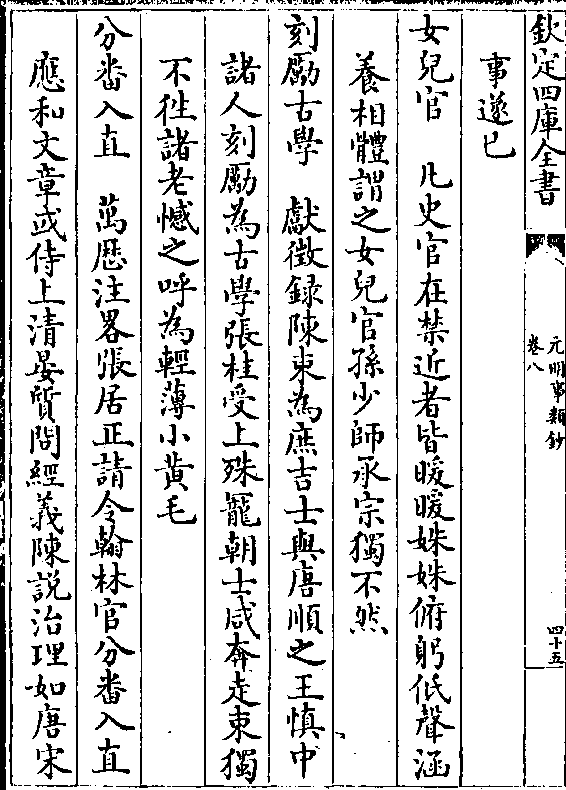 欽定四庫全書
元明事類鈔
卷八
四十五
事遂已
女兒官　凡史官在禁近者皆暖暖姝姝俯躬低聲涵
養相體謂之女兒官孫少師承宗獨不然
刻勵古學　獻徵録陳束為庶吉士與唐順之王慎中
諸人刻勵為古學張桂受上殊寵朝士咸奔走束獨
不徃諸老憾之呼為輕薄小黄毛
分番入直　萬歴注畧張居正請令翰林官分番入直
應和文章或侍上清晏質問經義陳説治理如唐宋